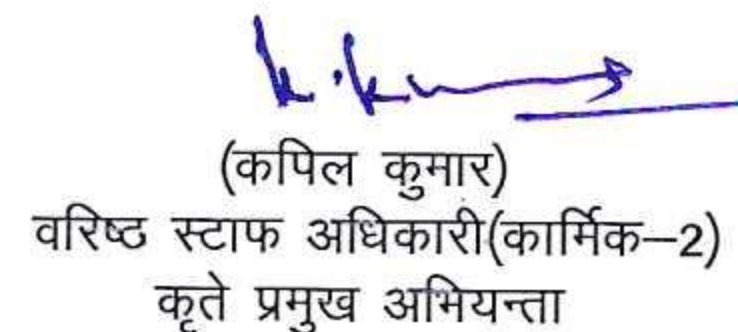 k.ku
(कपिल कुमार)
वरिष्ठ स्टाफ अधिकारी(कार्मिक–2)
कृते प्रमुख अभियन्ता